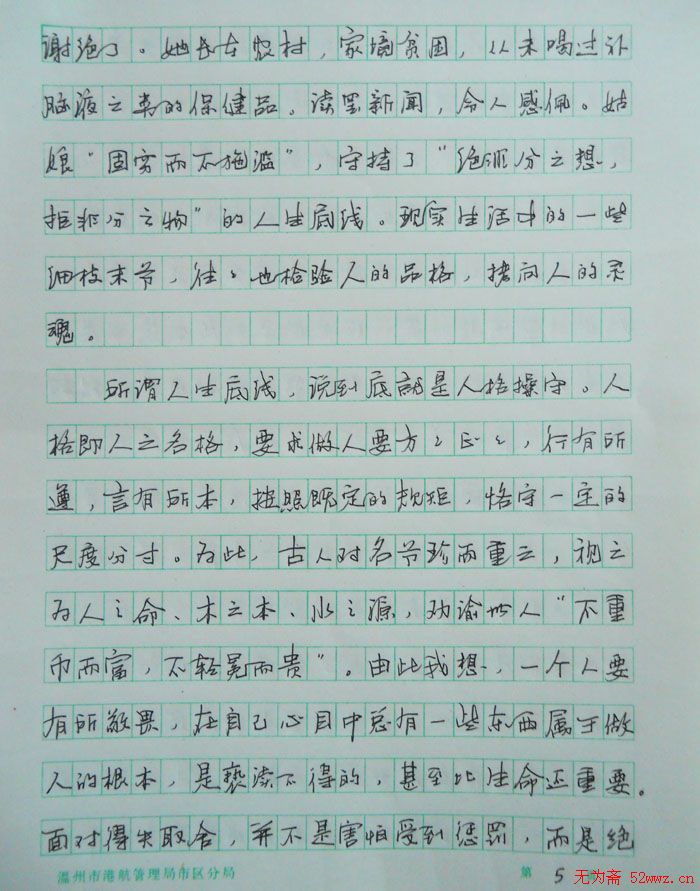 谢绝了。她长在农村，家境贫困，从未喝过补
脑液之类的保健品。读罢新闻，令人感佩。姑
娘“固穷而不施滥”，守持了“绝非分之想，
拒非分之物”的人生底线。现实生活中的一些
细枝末节，往々也检验人的品格，拷问人的灵
魂。
所谓人生底线，说到底就是人格操守。人
格即人之名格，要求做人要方々正々，行有所
遵，言有所本，按照既定的规矩，恪守一定的
尺度分寸。为此，古人对名节珍而重之，视之
为人之命、木之本、水之源，劝谕世人“不重
币而富，不轻冕而贵”。由此我想，一个人要
有所敬畏，在自己心目中总有一些东西属于做
人的根本，是亵渎不得的，甚至比生命还重要。
面对得失取舍，并不是害怕受到惩罚，而是绝
温州市港航管理局市区分局 第 5
无为斋 52wwz.cn